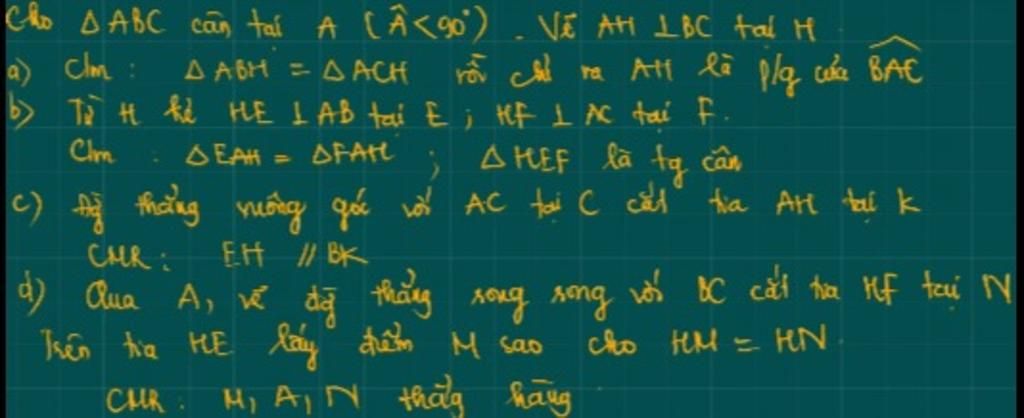 Cho △ABC cân tại A (Â<90°). Vẽ AH ⊥BC tại H
a) C/m : △ABH = △ACH rồi chỉ ra AH là p/g của BAC
b) Từ H kẻ HE ⊥ AB tại E ; HF ⊥ AC tại F.
C/m : △EAH = △FAH ; △HEF là tg cân
c) thẳng vuông góc với AC tại C cắt tia AH tại K
CMR : EH // BK
d) Qua A, vẽ đg thẳng song song với BC cắt tia HF tại N
Trên tia HE lấy điểm M sao cho HM = HN.
CMR : M, A, N thẳng hàng